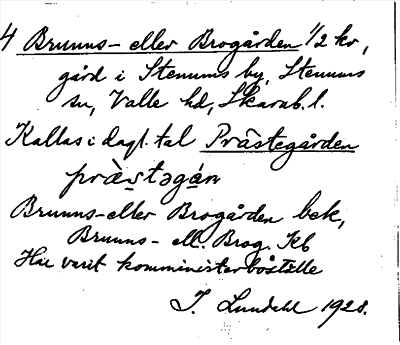 4 Brunns- eller Brogården 1/2 hr,
gård i Stenums by, Stenums
sn, Valle hd, Skarab. l.
Kallas i dagl. tal Prästegården
præ̀stəgán
Brunns- eller Brogården bek,
Brunns- ell. Brog. Kb
Har varit komministerboställe
I. Lundahl 1928.